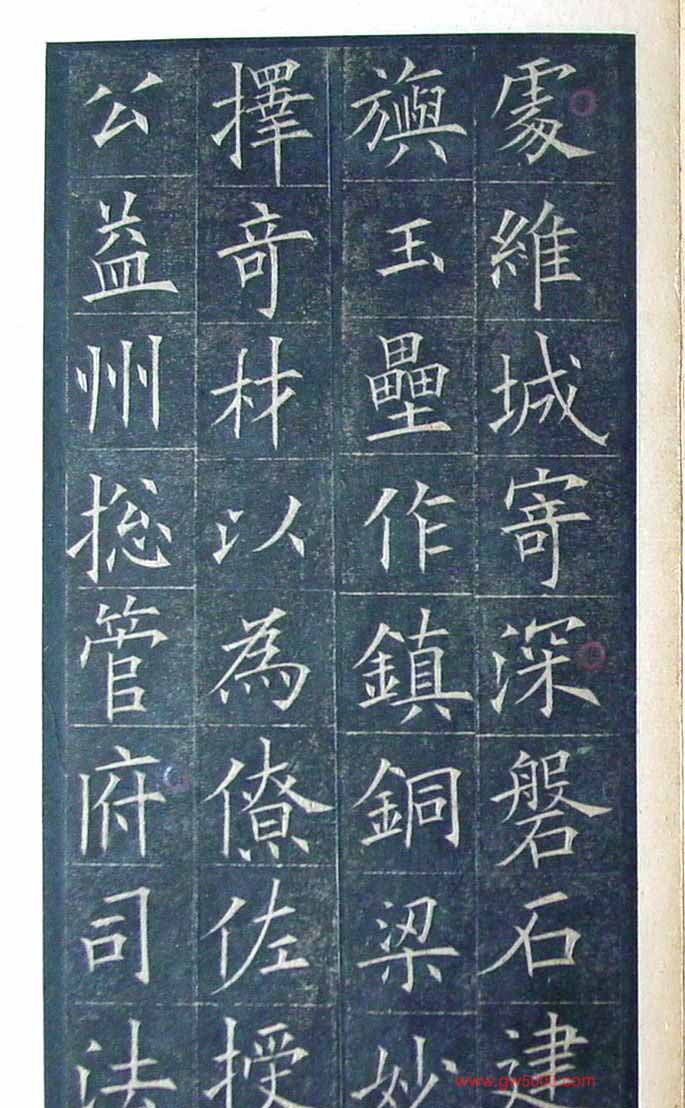 處維城寄深磐石建
旟玉壘作鎮銅梁妙
擇竒材以為僚佐授
公益州捴管府司法
www.gw5000.com